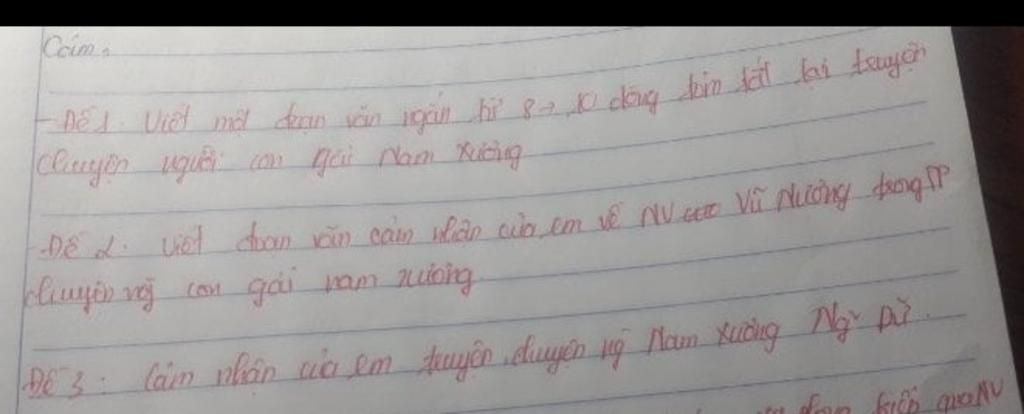 Cảm.
- Đề 1. Viết một đoạn văn ngắn từ 8 → 10 dòng tóm tắt lại truyện
chuyện người con gái Nam Xương
- Đề 2. Viết đoạn văn cảm nhận của em về NV Vũ Nương trong TP
chuyện con gái nam xương
Đề 3: Cảm nhận của em truyện chuyện ng Nam Xương Ng~ Dữ.
qua NV